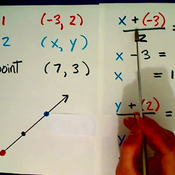 1 (-3, 2)
2 (x, y)
point (7, 3)
x + (-3)
2
x - 3 =
x = 1
y + (2)